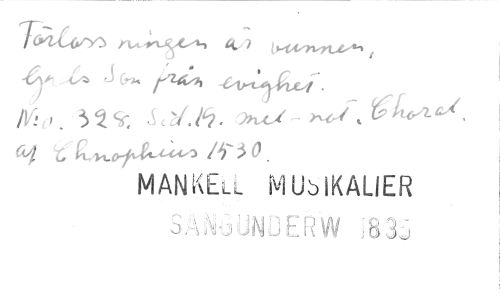 Förlossningen är vunnen,
Guds Son från evighet.
No. 328. Sid. 19. mel-not. Choral.
af Chnophius 1530.
MANKELL MUSIKALIER
SANGUNDERW 1835